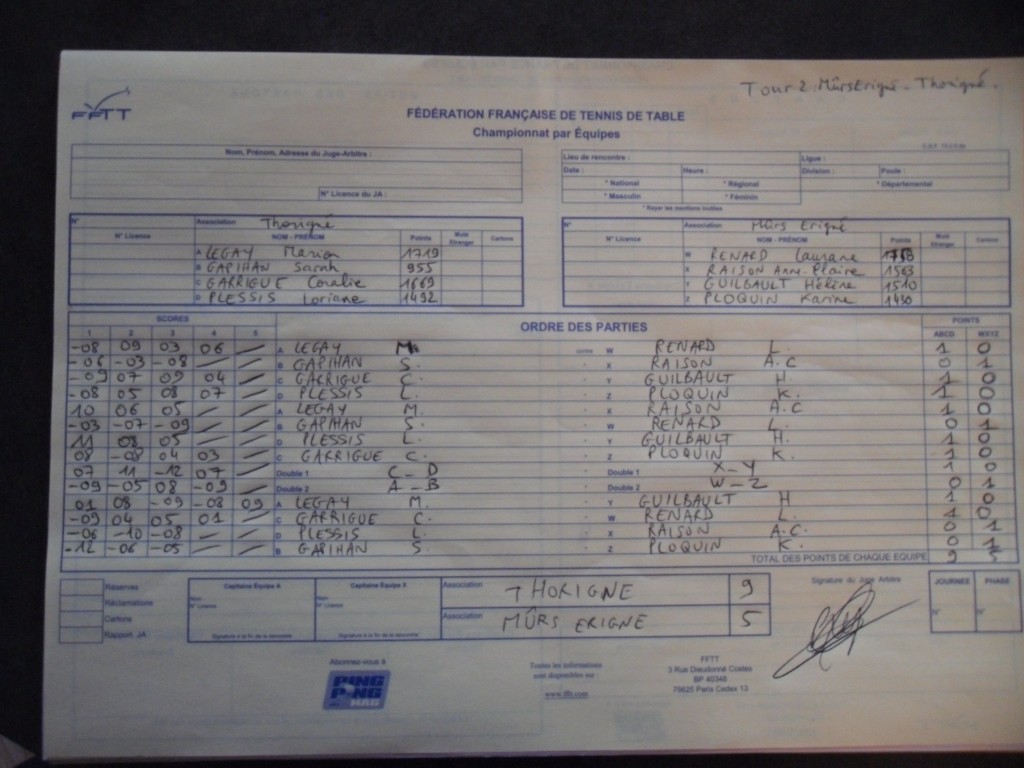 Tour 2: MûrsErigné - Thorigné.
FFTT
FÉDÉRATION FRANÇAISE DE TENNIS DE TABLE
Championnat par Équipes
Nom, Prénom, Adresse du Juge-Arbitre :
N° Licence du JA :
Lieu de rencontre : Ligue :
Date : Heure : Division : Poule :
* National * Régional * Départemental
* Masculin * Féminin
* Rayer les mentions inutiles
N° Association Thorigné
N° Licence NOM - PRÉNOM Points Muté Etranger Cartons
A LEGAY Marion 1719
B GAPIHAN Sarah 955
C GARRIGUE Coralie 1669
D PLESSIS Loriane 1492
N° Association Mûrs Erigné
N° Licence NOM - PRÉNOM Points Muté Etranger Cartons
W RENARD Lauriane
X RAISON Ann-Claire 1563
Y GUILBAULT Hélène 1510
Z PLOQUIN Karine 1430
SCORES ORDRE DES PARTIES POINTS
1 2 3 4 5 ABCD WXYZ
-08 09 03 06 / A LEGAY M. contre W RENARD L. 1 0
-06 -03 -08 / / B GAPIHAN S. X RAISON A.C 0 1
-09 07 09 04 / C GARRIGUE C. Y GUILBAULT H. 1 0
-08 05 08 07 / D PLESSIS L. Z PLOQUIN K. 1 0
10 06 05 / / A LEGAY M. X RAISON A.C 1 0
-03 -07 -09 / / B GAPIHAN S. W RENARD L. 0 1
11 08 05 / / D PLESSIS L. Y GUILBAULT H. 1 0
08 -08 04 03 / C GARRIGUE C. Z PLOQUIN K. 1 0
07 11 -12 07 / Double 1 C - D Double 1 X - Y 1 0
-09 -05 08 -09 / Double 2 A - B Double 2 W - Z 0 1
01 08 -09 -08 09 A LEGAY M. Y GUILBAULT H 1 0
-09 04 05 01 / C GARRIGUE C. W RENARD L. 1 0
-06 -10 -08 / / D PLESSIS L. X RAISON A.C. 0 1
-12 -06 -05 / / B GAPIHAN S. Z PLOQUIN K. 0 1
TOTAL DES POINTS DE CHAQUE EQUIPE 9 5
Réserves
Réclamations
Cartons
Rapport JA
Capitaine Equipe A
Nom:
N° Licence
Signature à la fin de la rencontre
Capitaine Equipe X
Nom:
N° Licence
Signature à la fin de la rencontre
Association THORIGNE 9
Association MÛRS ERIGNE 5
Signature du Juge Arbitre
JOURNEE PHASE
N° N°
Abonnez-vous à
PING PONG MAG
Toutes les informations
sont disponibles sur :
www.fftt.com
FFTT
3 Rue Dieudonné Costes
BP 40348
75625 Paris Cedex 13